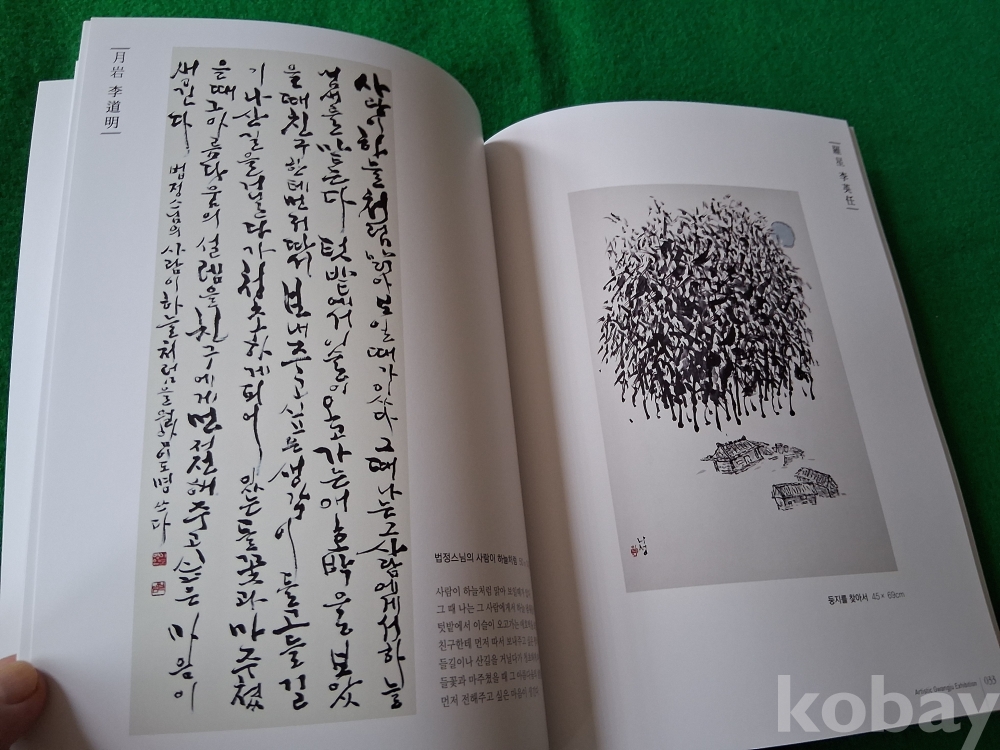 月岩 李道明
사람이 하늘처럼 맑아 보일때가 있다 그때 나는 그사람에게서 하늘
냄새를 맡는다 텃밭에서 이슬이 오고가는 애호박을 보았
을때 친구한테 먼저 따서 보내주고 싶은 생각이 들고 들길
이나 산길을 거닐다가 청초하게 피어 있는 들꽃과 마주쳤
을때 그 아름다움의 설렘을 친구에게 먼저 전해주고 싶은 마음이
생긴다 법정스님의 사람이 하늘처럼을 월암 이도명 쓰다
법정스님의 사람이 하늘처럼
사람이 하늘처럼 맑아 보일때가
그 때 나는 그 사람에게서 하늘
텃밭에서 이슬이 오고가는
친구한테 먼저 따서 보내주고 싶은
들길이나 산길을 거닐다가
들꽃과 마주쳤을 때 그
먼저 전해주고 싶은 마음이
羅星 李英任
나성
둥지를 찾아서 45× 69cm
Artistic Gwangju Exhibition | 033
kobay